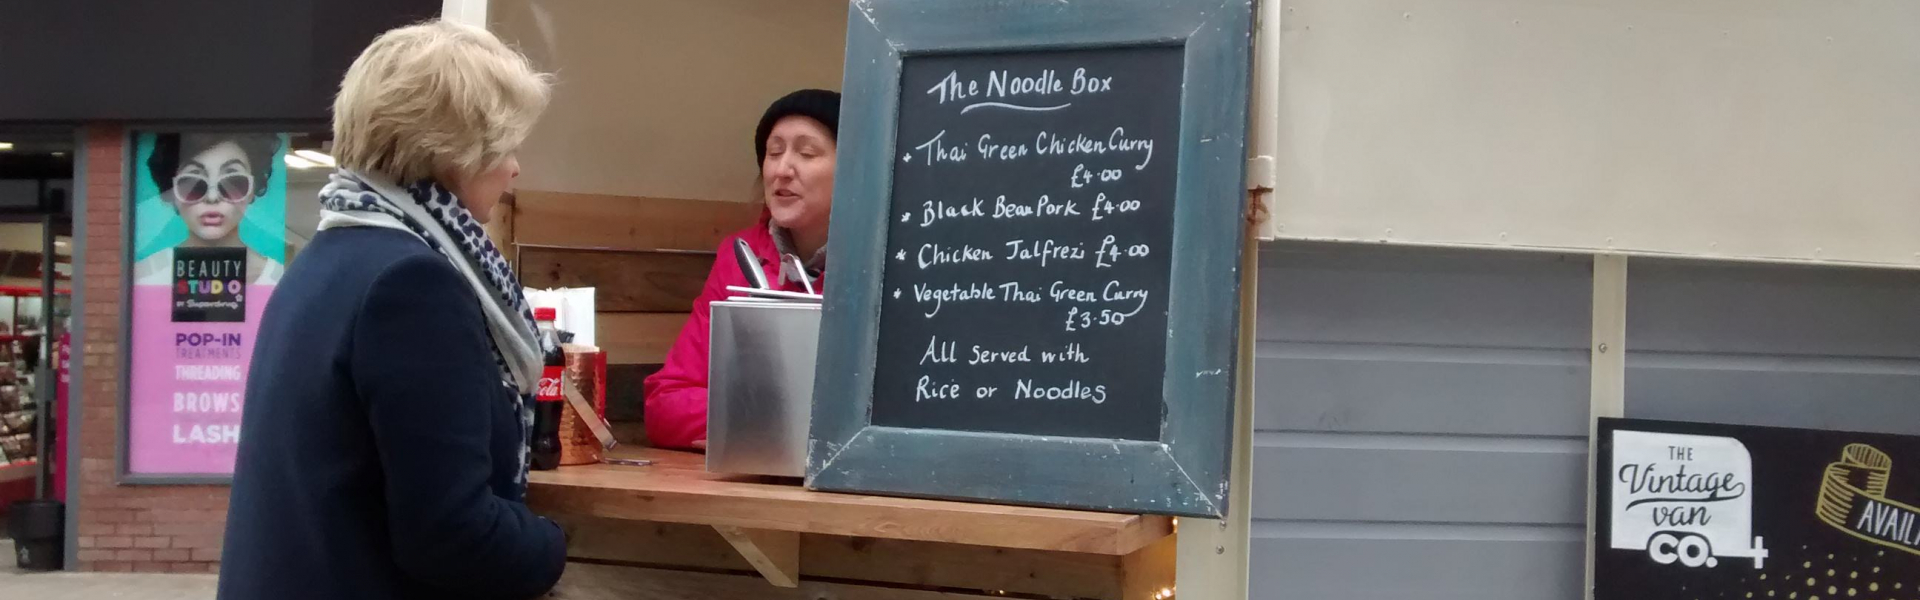 BEAUTY
STUDIO
BY Superdrug
POP-IN
TREATMENTS
THREADING
BROWS
LASH
Cola
The Noodle Box
* Thai Green Chicken Curry
£4.00
* Black Bean Pork £4.00
* Chicken Jalfrezi £4.00
* Vegetable Thai Green Curry
£3.50
All Served with
Rice or Noodles
THE
Vintage
van
CO.
AVAIL